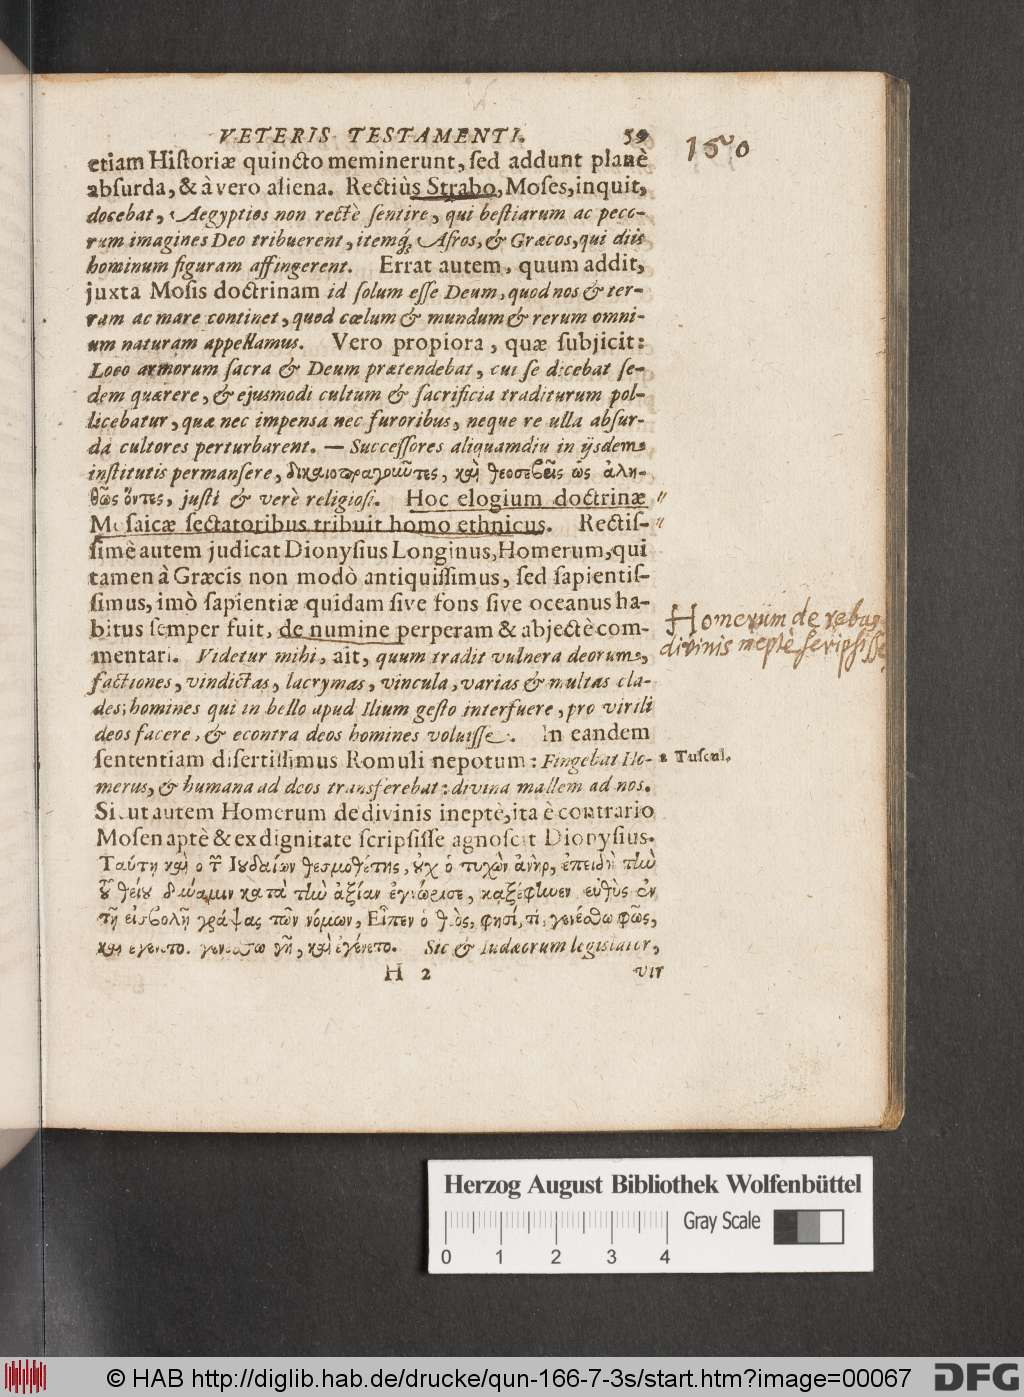 VETERIS TESTAMENTI. 59
etiam Historiæ quincto meminerunt, sed addunt planè
absurda, & à vero aliena. Rectiùs Strabo, Moses, inquit,
docebat, Aegyptios non rectè sentire, qui bestiarum ac peco-
rum imagines Deo tribuerent, itemq́; Afros, & Græcos, qui diis
hominum figuram affingerent. Errat autem, quum addit,
juxta Mosis doctrinam id solum esse Deum, quod nos & ter-
ram ac mare continet, quod cœlum & mundum & rerum omni-
um naturam appellamus. Vero propiora, quæ subjicit:
Loco armorum sacra & Deum prætendebat, cui se dicebat se-
dem quærere, & ejusmodi cultum & sacrificia traditurum pol-
licebatur, quæ nec impensa nec furoribus, neque re ulla absur-
da cultores perturbarent. — Successores aliquamdiu in ijsdem
institutis permansere, δικαιοπραγοῦντες, καὶ θεοσεβεῖς ὡς ἀλη-
θῶς ὄντες, justi & verè religiosi. Hoc elogium doctrinæ "
Mosaicæ sectatoribus tribuit homo ethnicus. Rectis- "
simè autem judicat Dionysius Longinus, Homerum, qui
tamen à Græcis non modò antiquissimus, sed sapientis-
simus, imò sapientiæ quidam sive fons sive oceanus ha-
bitus semper fuit, de numine perperam & abjectè com-
mentari. Videtur mihi, ait, quum tradit vulnera deorum,
factiones, vindictas, lacrymas, vincula, varias & multas cla-
des; homines qui in bello apud Ilium gesto interfuere, pro virili
deos facere, & econtra deos homines voluisse. In eandem
sententiam disertissimus Romuli nepotum: Fingebat Ho- 1 Tuscul.
merus, & humana ad deos transferebat: divina mallem ad nos.
Sicut autem Homerum de divinis ineptè, ita è contrario
Mosen aptè & ex dignitate scripsisse agnoscit Dionysius.
Ταύτῃ καὶ ὁ τῶν Ιουδαίων θεσμοθέτης, οὐχ ὁ τυχὼν ἀνὴρ, ἐπειδὴ τὴν
τοῦ θείου δύναμιν κατὰ τὴν ἀξίαν ἐγνώρισε, καξέφηνεν, εὐθὺς ἐν
τῇ εἰσβολῇ γράψας τῶν νόμων, Εἶπεν ὁ θεὸς, φησί, τί; γενέσθω φῶς,
καὶ εγενετο. γενεσθω γῆ, καὶ ἐγένετο. Sic & Iudæorum legislator,
H 2 vir
Homerum de rebus
divinis ineptè scripsisse
Herzog August Bibliothek Wolfenbüttel
Gray Scale
0 1 2 3 4
© HAB http://diglib.hab.de/drucke/qun-166-7-3s/start.htm?image=00067
DFG